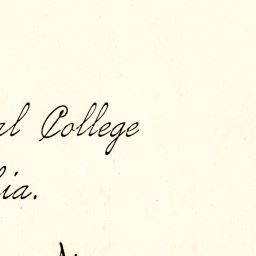 al College
hia.